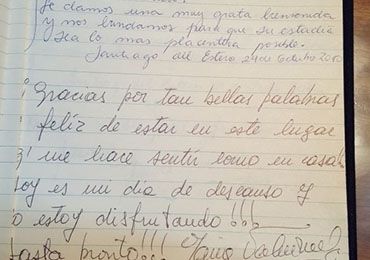 Te damos una muy grata bienvenida
y nos brindamos para que su estadía
sea lo mas placentera posible.
Santiago del Estero 24 de Octubre
¡Gracias por tan bellas palabras
feliz de estar en este lugar
me hace sentir como en casa!
oy es mi día de descanso y
o estoy disfrutando!!!
asta pronto!!!